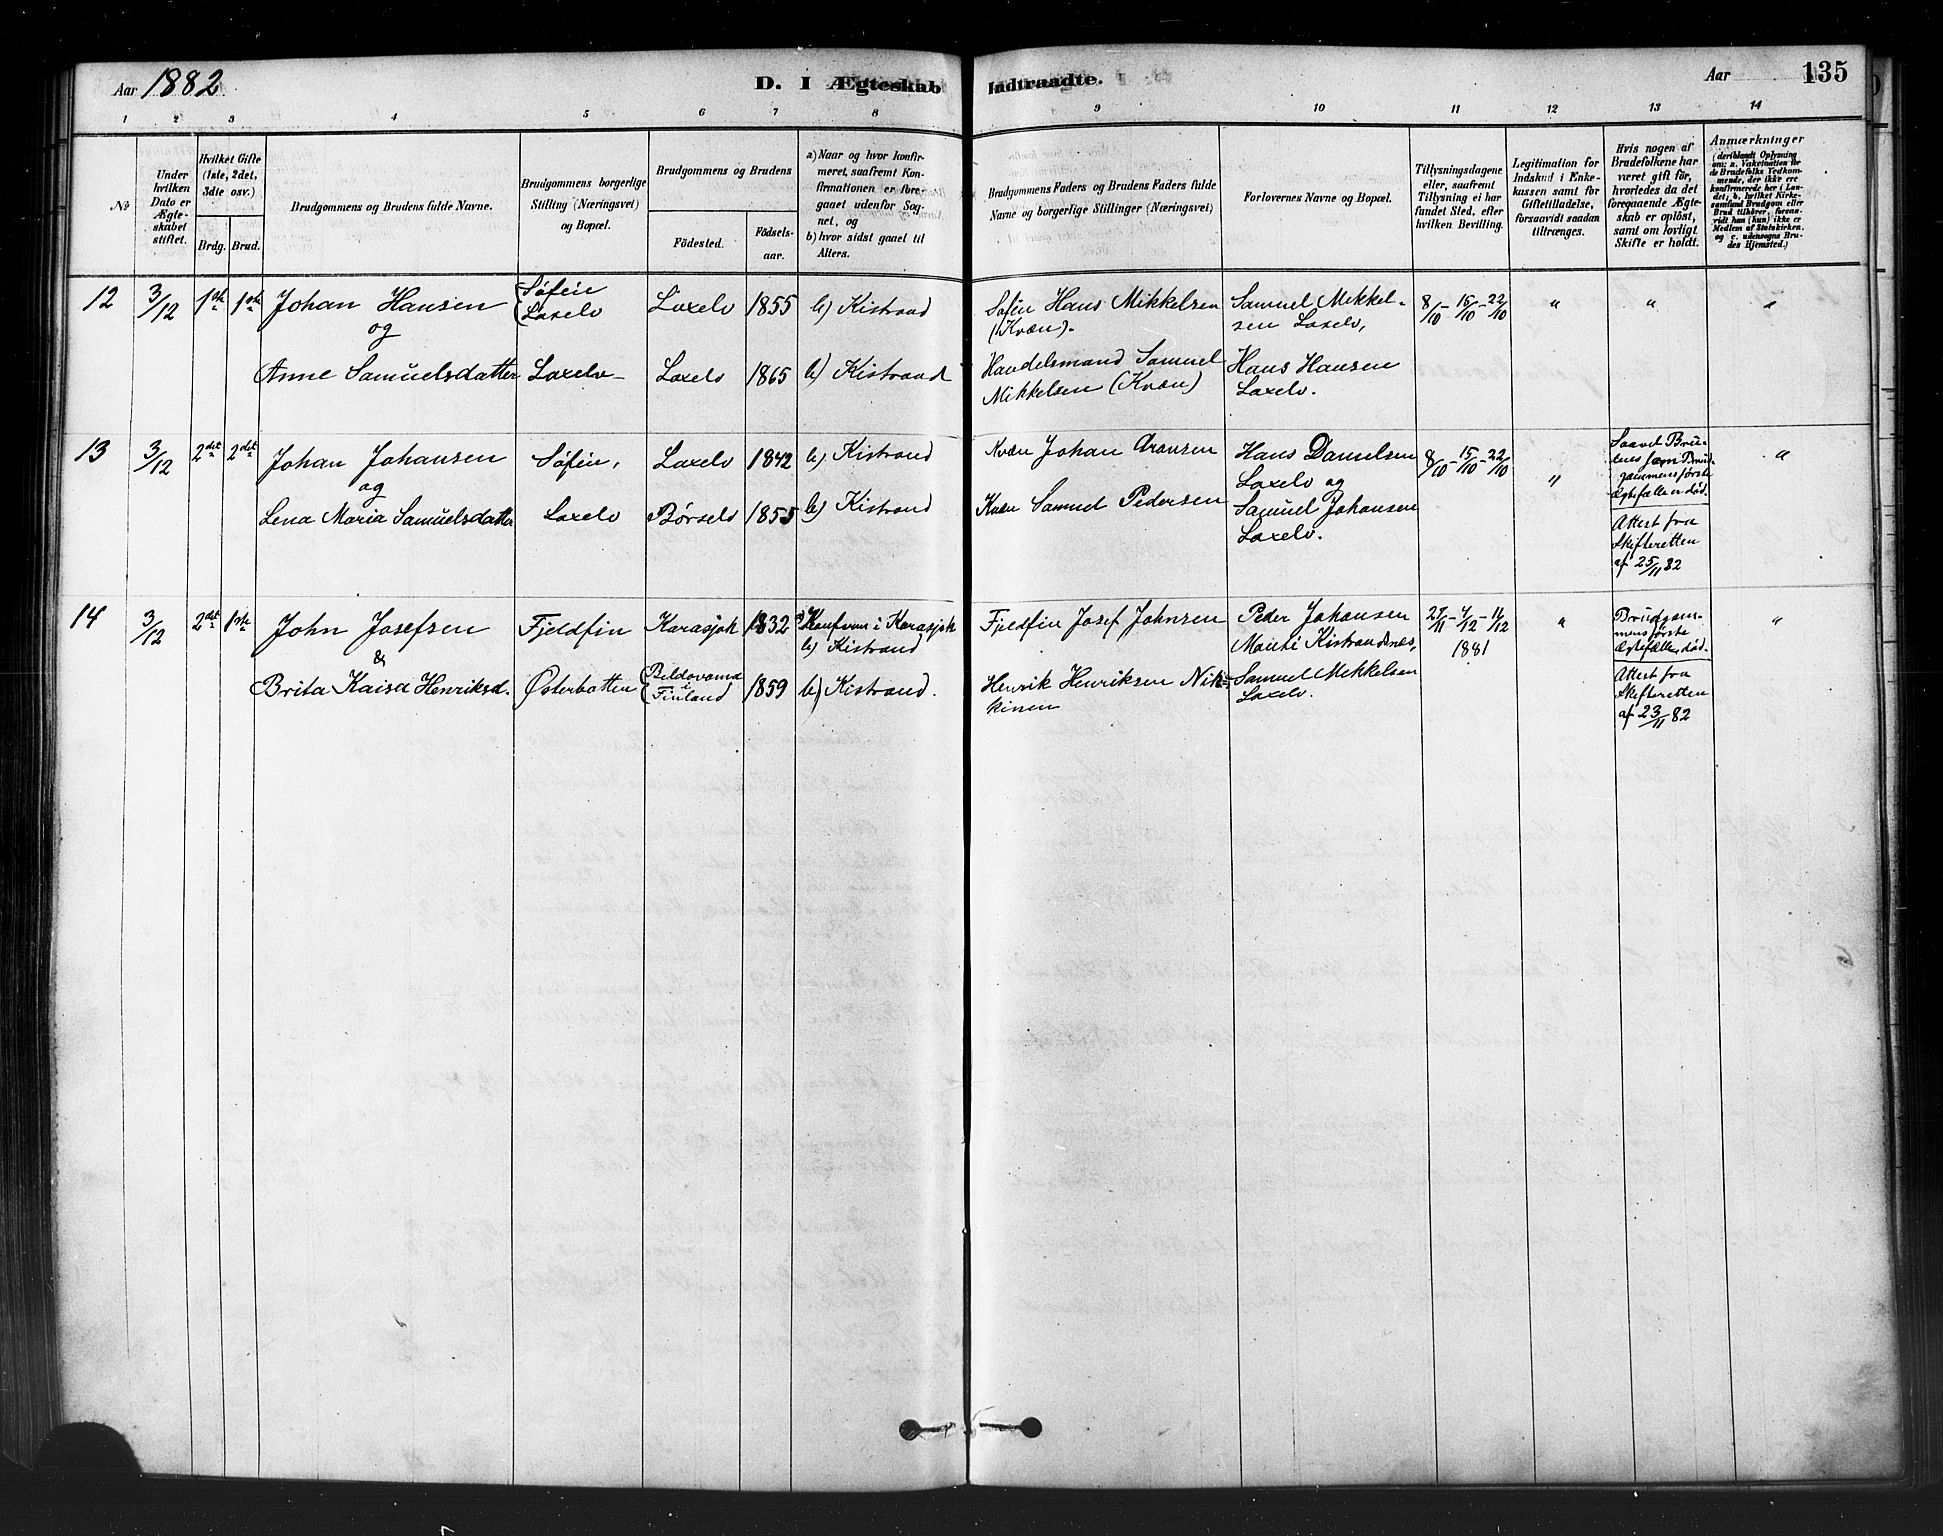 Aar 1882
D. I Ægteskab Indtraadte.
Aar
135
1 2 3 4 5 6 7 8 9 10 11 12 13 14
No
Under hvilken Dato er Ægteskabet stiftet.
Hvilket Gifte (1ste, 2det, 3die osv.)
Brdg. Brud.
Brudgommens og Brudens fulde Navne.
Brudgommens borgerlige Stilling (Næringsvei) og Bopæl.
Brudgommens og Brudens
Födested.
Födsels-aar.
a) Naar og hvor konfirmeret, saafremt Konfirmationen er foregaaet udenfor Sognet, og
b) hvor sidst gaaet til Alters.
Brudgommens Faders og Brudens Faders fulde Navne og borgerlige Stillinger (Næringsvei)
Forlovernes Navne og Bopæl.
Tillysningsdagene eller, saafremt Tillysning ei har fundet Sted, efter hvilken Bevilling.
Legitimation for Indskud i Enkekassen samt for Giftetilladelse, forsaavidt saadan tiltrænges.
Hvis nogen af Brudefolkene har været gift för, hvorledes da det foregaaende Ægteskab er oplöst, samt om lovligt Skifte er holdt.
Anmærkninger
(deriblandt Oplysning om: a. Vakcination for de Brudefolks Vedkommende, der ikke ere konfirmerede her i Landet, b. hvilket Kirkesamfund Brudgom eller Brud tilhörer, forsaavidt han (hun) ikke er Medlem af Statskirken, og c. udensogns Brudes Hjemsted.)
12 3/12 1ste 1ste Johan Hansen
og
Søfin
Laxelv
Laxelv 1855 b) Kistrand
Søfin Hans Mikkelsen
(Kvæn).
Samuel Mekkel-
sen Laxelv,
8/10 - 15/10 - 22/10 " " "
Anne Samuelsdatter Laxelv Laxelv 1865 b) Kistrand
Handelsmand Samuel
Mikkelsen (Kvæn)
Hans Hansen
Laxelv.
13 3/12 2det 2det Johan Johansen
og
Søfin, Laxelv 1842 b) Kistrand
Kvæn Johan Aronsen
Hans Danielsen
Laxelv og
8/10 - 15/10 - 22/10 "
Saavel Bru-
dens som Brud-
gommens første
Ægtefælle er død.
"
Lena Maria Samuelsdatter Laxelv Børselv 1855 b) Kistrand
Kvæn Samuel Pedersen
Samuel Johansen
Laxelv.
Attest fra
Skifteretten
af 25/11 82
14 3/12 2det 1ste John Josefsen
&
Fjeldfin Karasjok 1832 a) Konfirm i Karasjok
b) Kistrand
Fjeldfin Josef Johnsen
Peder Johansen
Kistrandnæs,
27/11 - 4/12 - 11/12
1881
"
Brudgom-
mens første
Ægtefælle, død.
"
Brita Kaisa Henriksd. Østerbotten
Finland
1859 b) Kistrand.
Henrik Henriksen Nik=
kinen
Samuel Mekkelsen
Laxelv.
Attest fra
Skifteretten
af 23/11 82